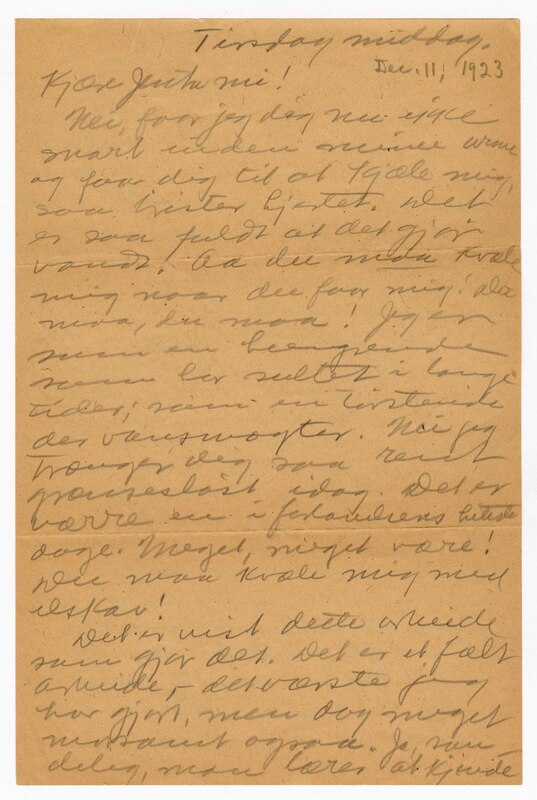 Tirsdag middag.
Dec. 11, 1923
Kjære Jenta mi!
Nei, faar jeg dig nu ikke
snart inden mine arme
og faar dig til at kjæle mig,
saa brister hjertet. Det
er saa fuldt at det gjør
vondt. Aa du maa kvæle
mig naar du faar mig! Du
maa, du maa! Jeg er
som en hungrende
som har sultet i lange
tider; som en tørstende
der vansmægter. Nei jeg
trænger dig saa rent
grænseløst idag. Det er
værre en i forlovelsens
dage. Meget, meget være!
Du maa kvæle mig med
elskov!
Det er vist dette arbeide
som gjør det. Det er et fælt
arbeide, - det værste jeg
har gjort, men dog meget
morsomt ogsaa. Ja, saa
man lærer at kjende